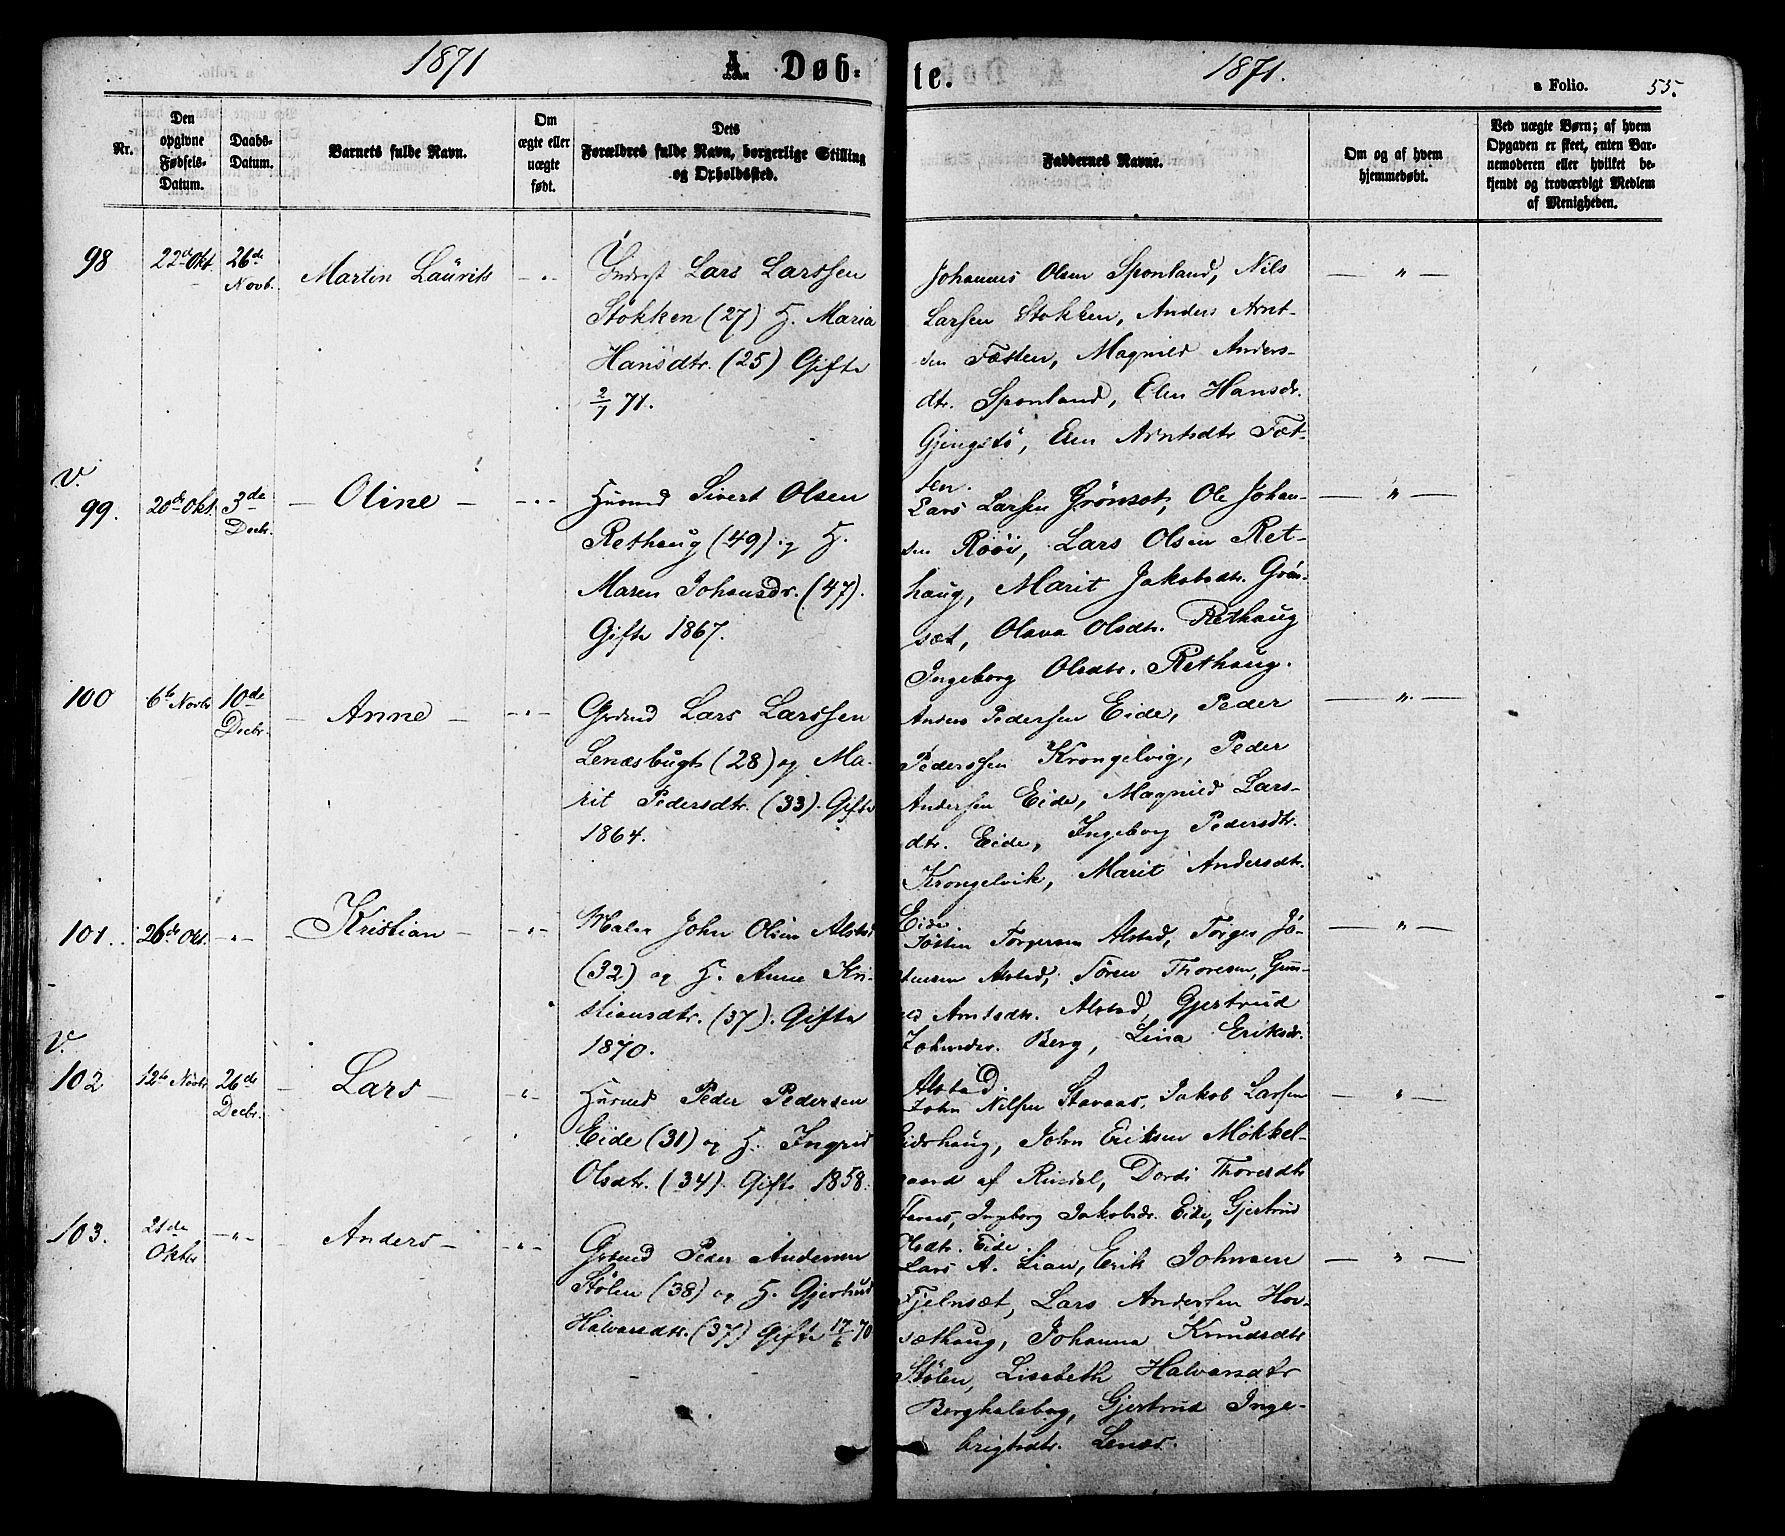 1871
A. Døb-
te.
1871.
a Folio.
55.
Nr.
Den
opgivne
Fødsels-
Datum.
Daabs-
Datum.
Barnets fulde Navn.
Om
ægte eller
uægte
født.
Dets
Forældres fulde Navn, borgerlige Stilling
og Opholdssted.
Faddernes Navne.
Om og af hvem
hjemmedøbt.
Ved uægte Børn; af hvem
Opgaven er skeet, enten Bar-
nemoderen eller hvilket be-
kjendt og troværdigt Medlem
af Menigheden.
98
22de Okt
26de
Novb.
Martin Laurits
Inderst Lars Larssen
Stokken (27) H. Maria
Hansdtr. (25) Gifte
2/1 71.
Johannes Olsen Sponland, Nils
Larsen Stokken, Anders Arnt-
sen Fætten, Magnild Anders-
dtr. Sponland, Elen Hansdr.
Gjengstö, Elen Arntsdtr Fæt-
ten.
V.
99.
20de Okt.
3de
Decbr.
Oline
Husmd Sivert Olsen
Rethaug (49) og H.
Maren Johansdr. (47).
Gifte 1867.
Lars Larsen Grönset, Ole Johan-
sen Lars Olsen Ret-
haug, Marit Jakobsdtr. Grön-
sæt, Olava Olsdtr. Rethaug
Ingeborg Olsdtr. Rethaug.
100
6te Novbr
10de
Decbr.
Anne
Grdmd Lars Larssen
Lenæsbugt (28) og Ma-
rit Pedersdtr. (33). Gifte
1864.
Anders Pedersen Eide, Peder
Pederssen Krongelvig, Peder
Andersen Eide, Magnild Lars-
dtr. Eide, Ingeborg Pedersdtr.
Krongelvik, Marit Andersdtr.
Eide.
101.
26de Okt.
- " -
Kristian
Maler John Olsen Alstad
(32) og H. Anne Kri-
stiansdtr. (37). Gifte
1870.
Jösten Torgersen Alstad, Torger Jö-
stensen Alstad, Sören Thoresen, Gun-
ild Arntsdtr. Alstad, Gjertrud
Johnsdr. Berg, Lina Eriksdr.
Alstad.
V.
102
12te Novbr.
26de
Decbr.
Lars
Husmd Peder Pedersen
Eide (31) og H. Ingrid
Olsdtr. (34). Gifte 1858.
John Nilsen Stavaas, Jakob Larsen
Eidshaug, John Eriksen Mökkel-
gaard af Rindal, Dordi Thoresdtr
Ingeborg Jakobsdr. Eide, Gjertrud
Olsdtr. Eide.
103.
21de
Oktbr
- " -
Anders
Grdmd Peder Andersen
Stölen (38) og H. Gjertrud
Halvarsdtr. (37) Gifte 70
Lars A. Lian, Erik Johnsen
Fjelnset, Lars Andersen Hov-
sæthaug, Johanna Knudsdtr
Stölen, Lisebeth Halvarsdtr
Berghalsbag, Gjertrud Inge-
brigtsdtr. Lenæs.